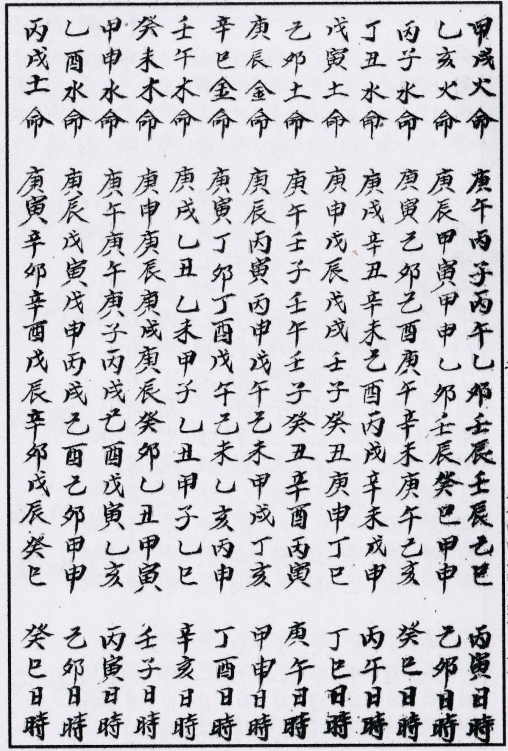 甲戌火命 庚午丙子丙午乙卯壬辰壬辰己巳 丙寅日時
乙亥火命 庚辰甲寅甲申乙卯壬辰癸巳甲申 己卯日時
丙子水命 庚寅己卯己酉庚午辛未庚午己亥 癸巳日時
丁丑水命 庚戌辛丑辛未己酉丙戌辛未戊申 丙午日時
戊寅土命 庚申戊辰戊戌壬子癸丑庚申丁巳 丁巳日時
己卯土命 庚午壬子壬午壬子癸丑辛酉丙寅 庚午日時
庚辰金命 庚辰丙寅丙申戊午己未甲戌丁亥 甲申日時
辛巳金命 庚寅丁卯丁酉戊午己未乙亥丙申 丁酉日時
壬午木命 庚戌乙丑乙未甲子乙丑甲子乙巳 辛亥日時
癸未木命 庚申庚辰庚戌庚辰癸卯乙丑甲寅 壬子日時
甲申水命 庚午庚午庚子丙戌己酉戊寅乙亥 丙寅日時
乙酉水命 庚辰戊寅戊申丙戌己酉己卯甲申 己卯日時
丙戌土命 庚寅辛卯辛酉戊辰辛卯戊辰癸巳 癸巳日時